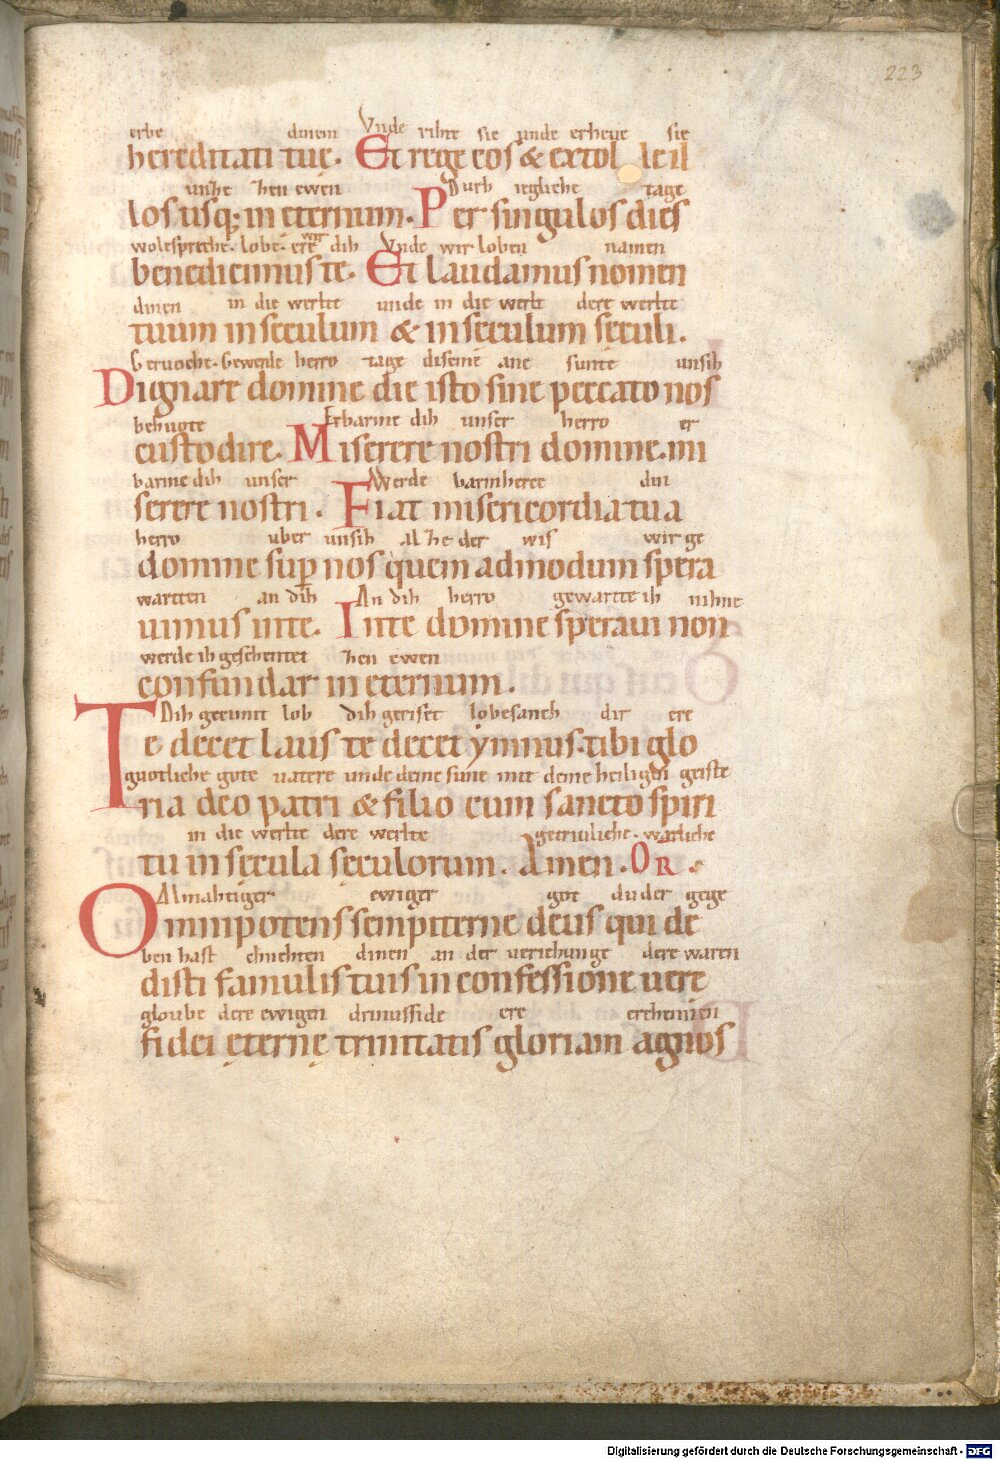 223
erbe dinem Vnde rihte sie unde erheue sie
hereditati tuę. Et rege eos & extol le il
unhe hen ewen Durh iegliche tage
los usq; in eternum. Per singulos dies
wolespreche. lobe. ere wir dih Vnde wir loben namen
benedicimus te. Et laudamus nomen
dinen in die werlte unde in die werlt dere werlte
tuum in seculum & in seculum seculi.
Geruoche. Gewerde herro tage diseme ane sunte unsih
Dignare domine die isto sine peccato nos
behuote Erbarme dih unser herro er
custodire. Miserere nostri domine. mi
barme dih unser Werde barmherce din
serere nostri. Fiat misericordia tua
herro uber unsih al he der wis wir ge
domine sup nos quem admodum spera
wartten an dih An dih herro gewartte ih nihne
uimus inte. Inte domine speraui non
werde ih geschentet hen ewen
confundar in eternum.
Dih gecumt lob dih geriset lobesanch dir ere
Te decet laus te decet ymnus. tibi glo
guotliche gote uatere unde deine sune mit deme heiligen geiste
ria deo patri & filio cum sancto spiri
in die werlte dere werlte getriuliche. warliche
tu in sęcula sęculorum. Amen. OR.
Almahtiger ewiger got du der gege
Omnipotens sempiterne deus qui de
ben hast chnehten dinen an der ueriehunge dere waren
disti famulis tuis in confessione uere
gloube dere ewigen drinusside ere erchennen
fidei ęternę trinitatis gloriam agnos
Digitalisierung gefördert durch die Deutsche Forschungsgemeinschaft - DFG